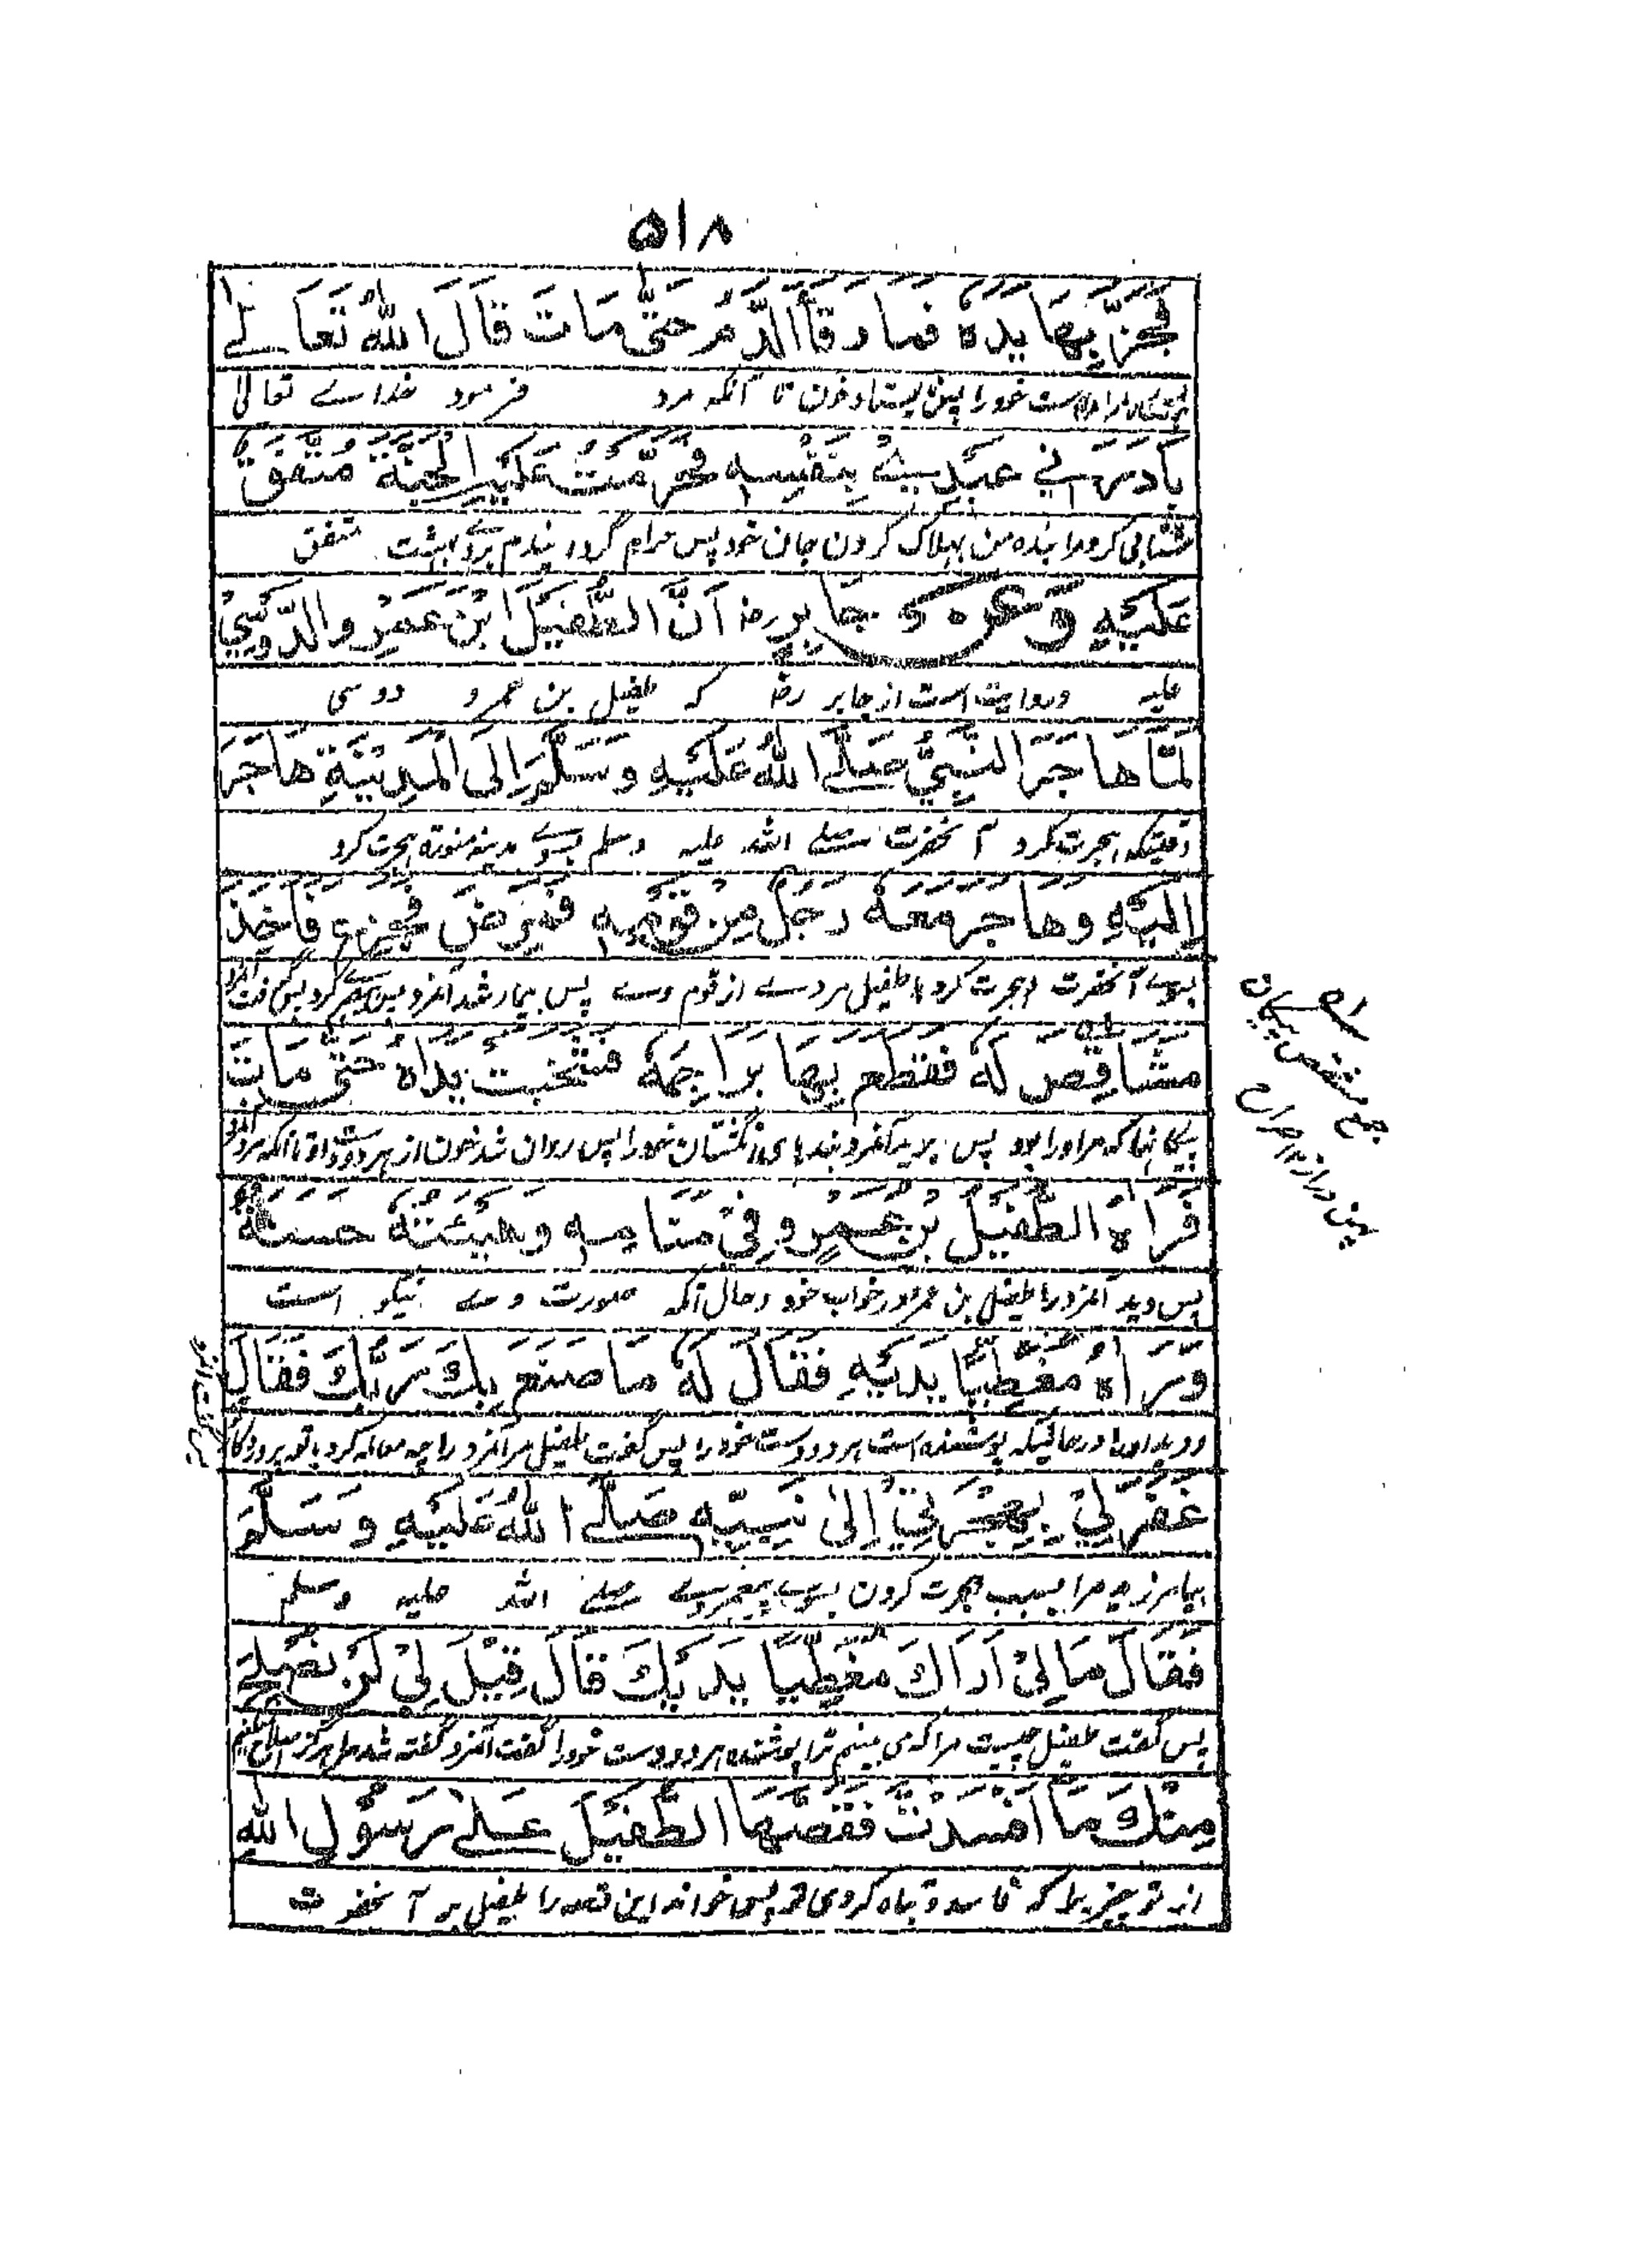 ۵۱۸
فَجَزَّ بِهَا يَدَهُ فَمَا رَقَأَ الدَّمُ حَتّٰى مَاتَ قَالَ اللّٰهُ تَعَالٰے
دست خود را پس نه ایستاد خون تا آنکه مرد فرمود خداے تعالیٰ
بَادَرَنِي عَبْدِيْ بِنَفْسِهٖ فَحَرَّمْتُ عَلَيْهِ الْجَنَّةَ مُتَّفَقٌ
شتابی کرد مرا بنده من بهلاک کردن جان خود پس حرام گردانیدم بروے بهشت متفق
عَلَيْهِ وَعَنْ جَابِرٍ رض اَنَّ الطُّفَيْلَ ابْنَ عَمْرٍو الدَّوْسِيَّ
علیه وروایت است از جابر رض که طفیل بن عمرو دوسی
لَمَّا هَاجَرَ النَّبِيُّ صَلَّے اللّٰهُ عَلَيْهِ وَسَلَّمَ اِلَى الْمَدِيْنَةِ هَاجَرَ
وقتیکه هجرت کرد آنحضرت صلے اللہ علیه وسلم بسوے مدینه منوره هجرت کرد
اِلَيْهِ وَهَاجَرَ مَعَهٗ رَجُلٌ مِنْ قَوْمِهٖ فَمَرِضَ فَجَزِعَ فَاَخَذَ
بسوے آنحضرت و هجرت کرد با طفیل مردے از قوم وے پس بیمار شد آنمرد پس کرد پس گرفت
مَشَاقِصَ لَهٗ فَقَطَعَ بِهَا بَرَاجِمَهٗ فَشَخَبَتْ يَدَاهُ حَتّٰى مَاتَ
پیکانها که مر اورا بود پس برید آنمرد بندهای انگشتان خود را پس روان شد خون از هر دو دست او تا آنکه مرد
فَرَاٰهُ الطُّفَيْلُ بْنُ عَمْرٍو فِيْ مَنَامِهٖ وَهَيْئَتُهٗ حَسَنَةٌ
پس دید آنمرد را طفیل بن عمرو در خواب خود و حال آنکه صورت وے نیکو است
وَرَاٰهُ مُغَطِّيًا يَدَيْهِ فَقَالَ لَهٗ مَا صَنَعَ بِكَ رَبُّكَ فَقَالَ
و دید اورا در حالیکه پوشنده است هر دو دست خود را پس گفت طفیل مر آنمرد را چه معامله کرد با تو پروردگار
غَفَرَ لِيْ بِهِجْرَتِيْ اِلٰى نَبِيِّهٖ صَلَّے اللّٰهُ عَلَيْهِ وَسَلَّمَ
بیامرزید مرا بسبب هجرت کردن بسوے پیغمبر وے صلے اللہ علیه وسلم
فَقَالَ مَا لِيْ اَرَاكَ مُغَطِّيًا يَدَيْكَ قَالَ قِيْلَ لِيْ لَنْ نُصْلِحَ
پس گفت طفیل چیست مرا که می بینم ترا پوشنده هر دو دست خود را گفت آنمرد گفته شد مرا هرگز
مِنْكَ مَا اَفْسَدْتَّ فَقَصَّهَا الطُّفَيْلُ عَلٰے رَسُوْلِ اللّٰهِ
از تو چیزیرا که فاسد و تباه کردی تو پس خواند این قصه را طفیل بر آنحضرت
جمع مشقص پیکان